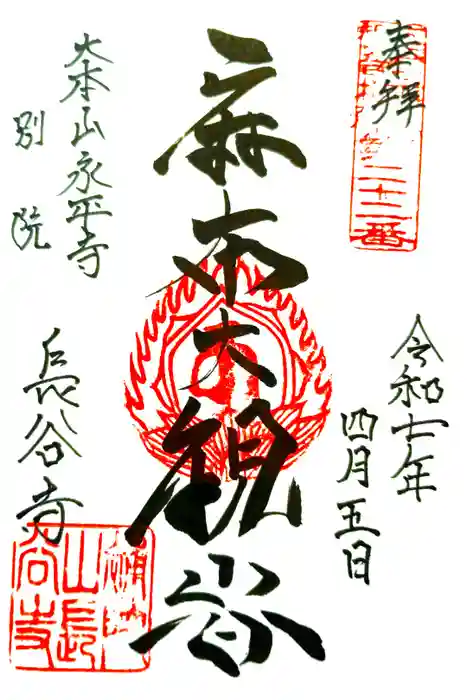 奉拝
二十二番
令和七年
四月五日
麻布大観音
大本山永平寺
別院
長谷寺
補陀
山長
谷寺